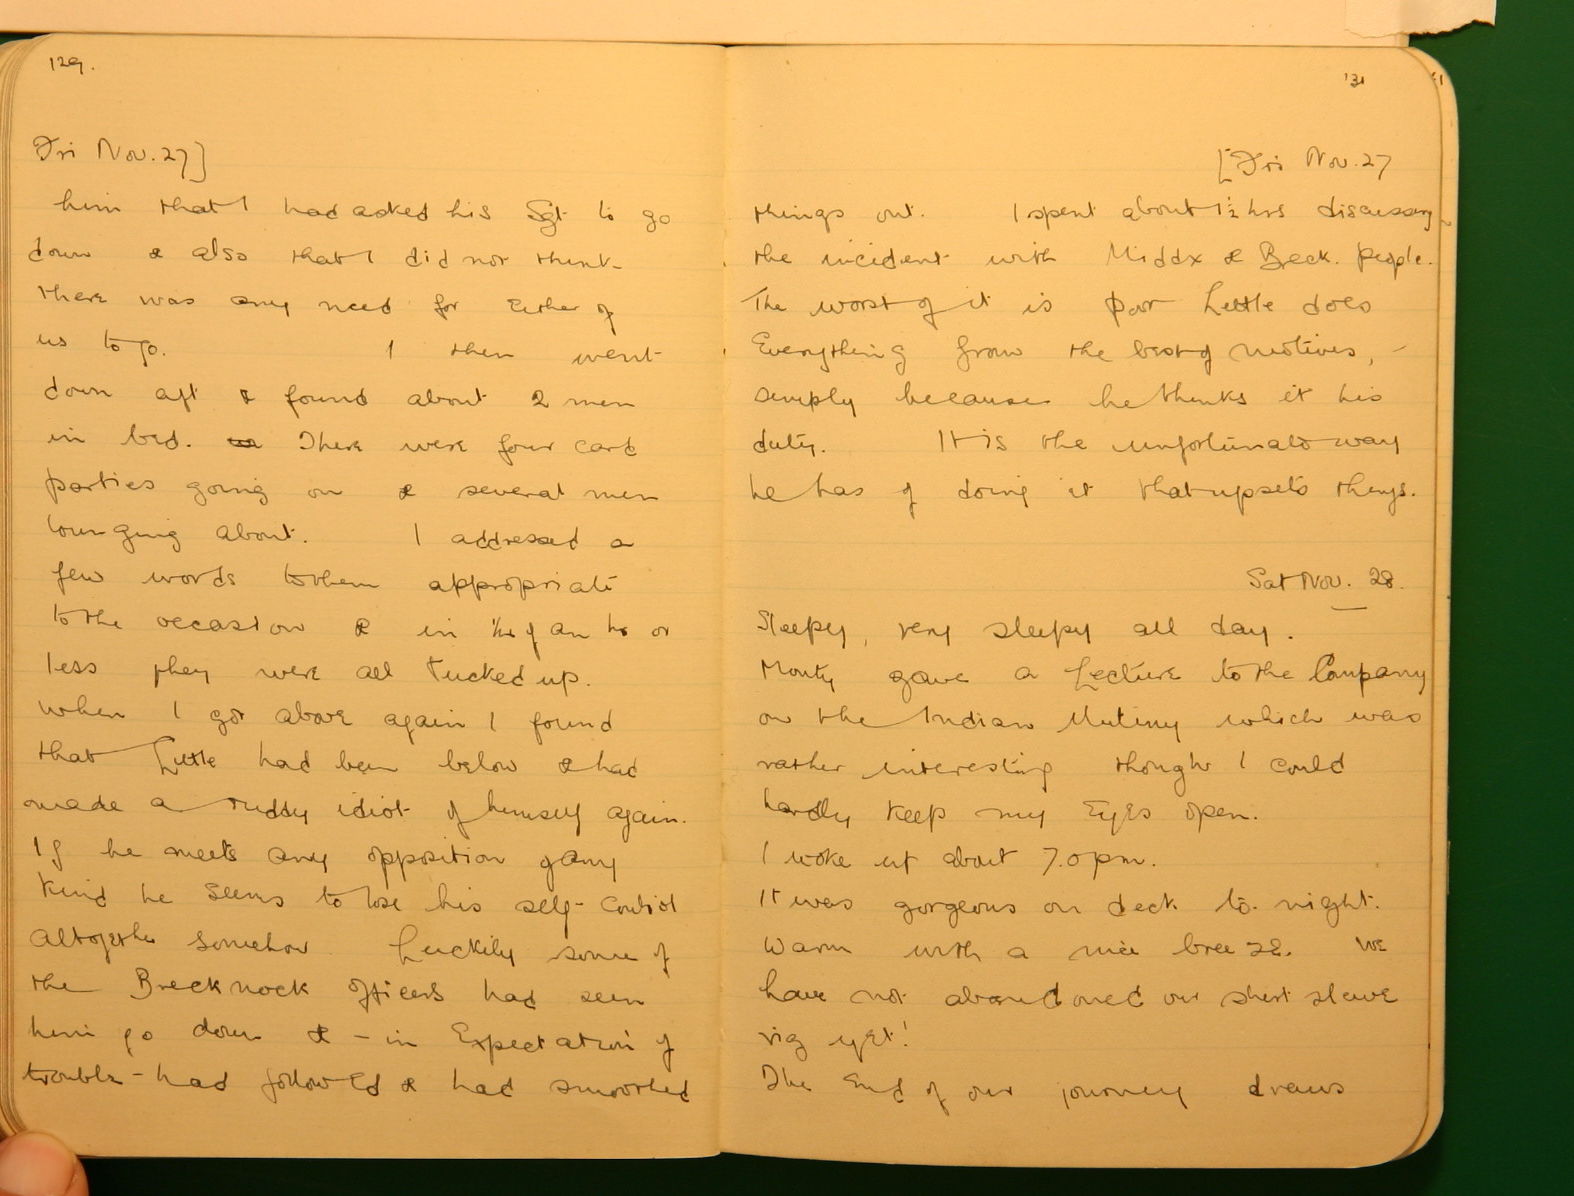 129.
Fri Nov. 27]
him that I had asked his Sgt to go
down & also that I did not think
there was any need for Either of
us to go. I then went
down aft & found about 2 men
in bed. There were four card
parties going on & several men
lounging about. I addressed a
few words to them appropriate
to the occasion & in ½ of an hr or
less they were all tucked up.
When I got above again I found
that Little had been below & had
made a ruddy idiot of himself again.
If he meets any opposition of any
Kind he seems to lose his self-control
altogether somehow. Luckily some of
the Brecknock officers had seen
him go down & - in Expectation of
trouble - had followed & had smoothed
131
[Fri Nov. 27
things out. I spent about 1½ hrs discussing
the incident with Middx & Breck. people.
The worst of it is that Little does
Everything from the best of motives, -
simply because he thinks it his
duty. It is the unfortunate way
he has of doing it that upsets things.
Sat Nov. 28.
Sleepy, very sleepy all day.
Monty gave a Lecture to the Company
on the Indian Mutiny which was
rather interesting though I could
hardly keep my Eyes open.
I woke up about 7.0 pm.
It was gorgeous on deck to-night.
Warm with a nice breeze. We
have not abandoned our short sleeve
rig yet!
The End of our journey draws